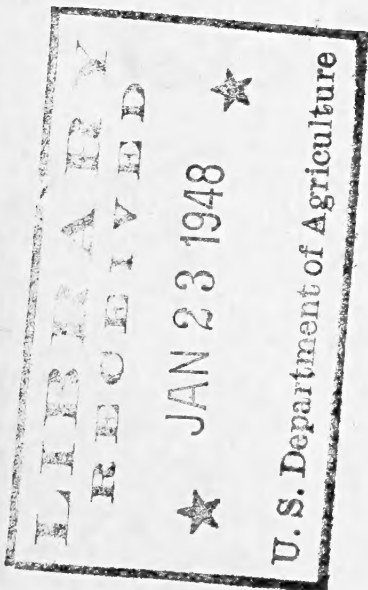 LIBRARY
RECEIVED
★ JAN 23 1948 ★
U. S. Department of Agriculture